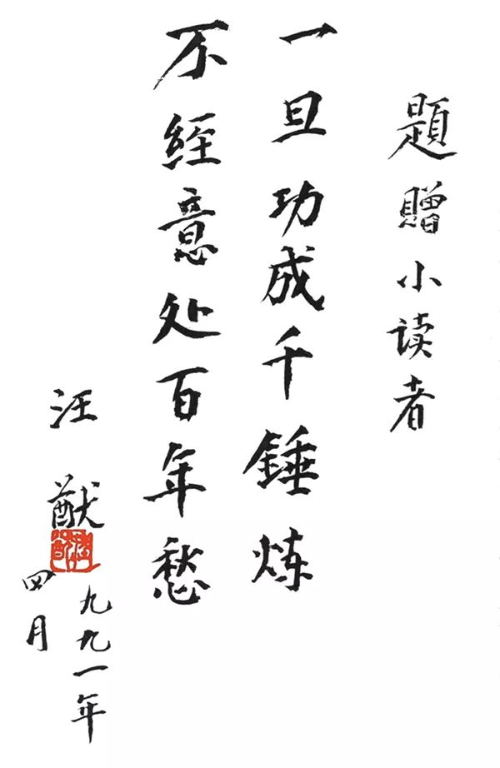 題贈小读者
一旦功成千錘炼
不經意处百年愁
汪猷
一九九一年
四月